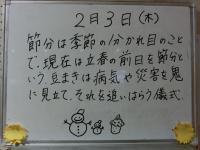 2月3日(木)
節分は季節の分かれ目のこと
で、現在は立春の前日を節分と
いう。豆まきは病気や災害を鬼
に見立て、それを追いはらう儀式。